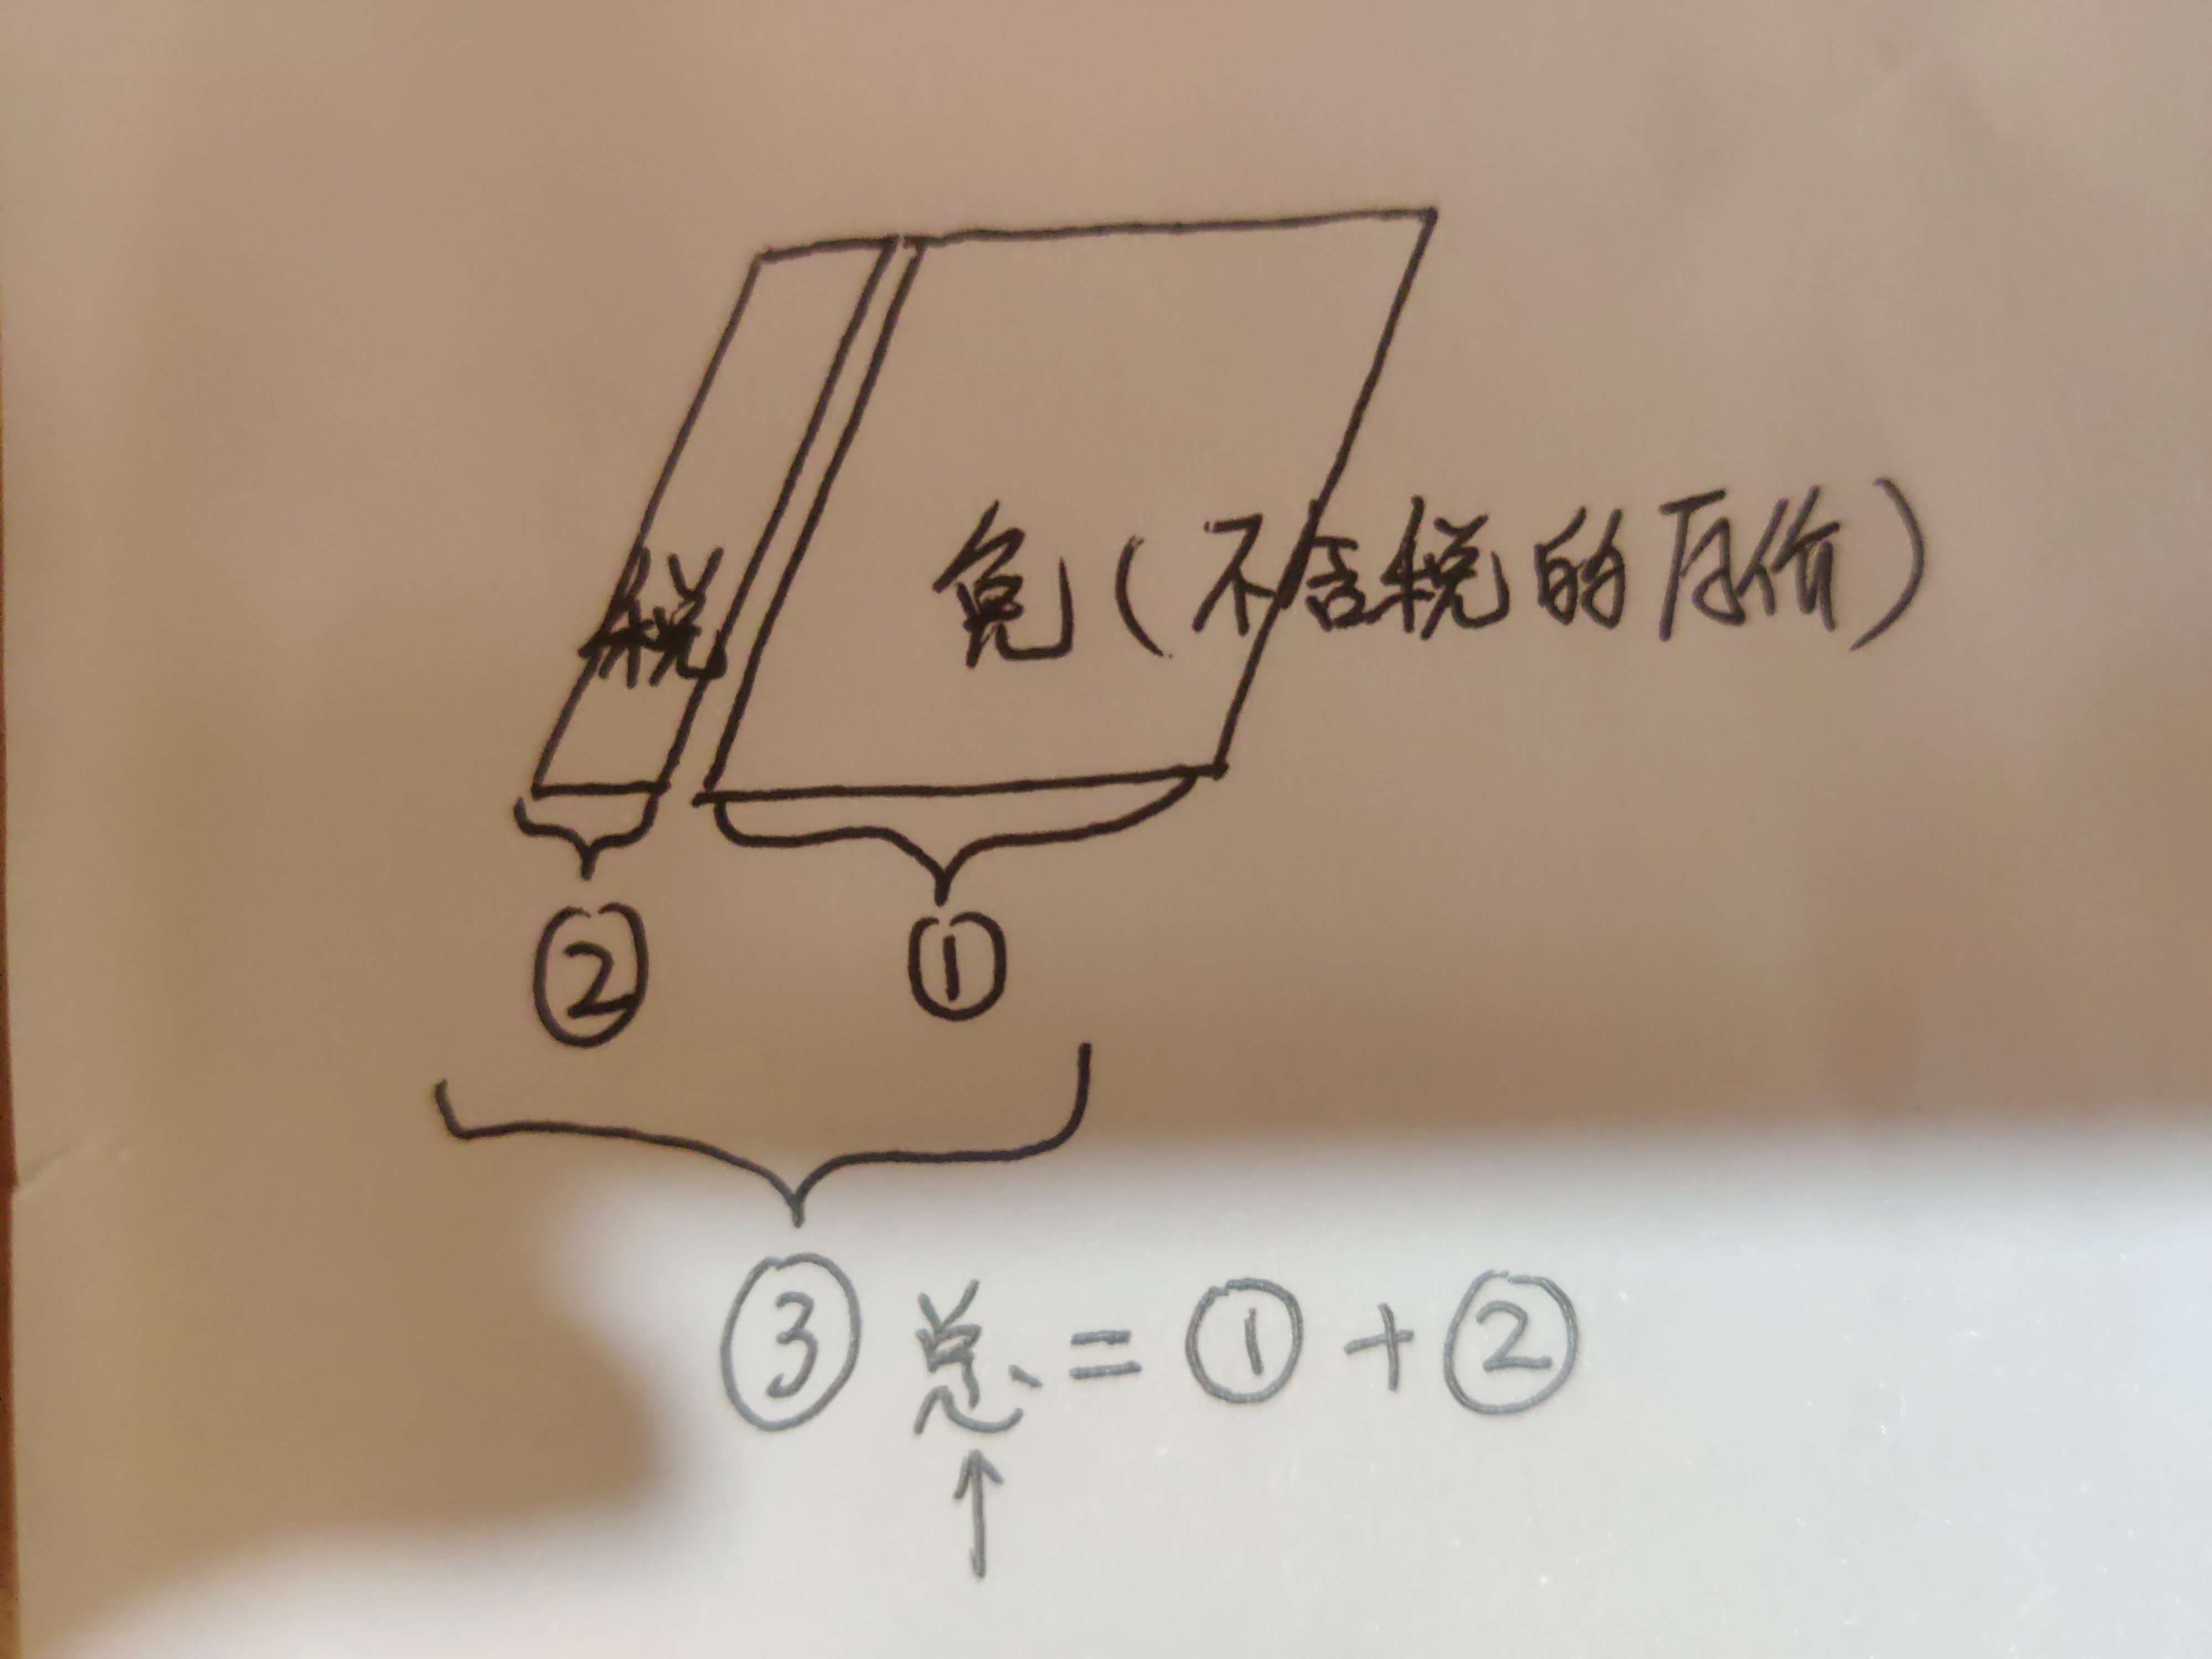 税 免(不含税的原价)
② ①
③总=①+②
↑